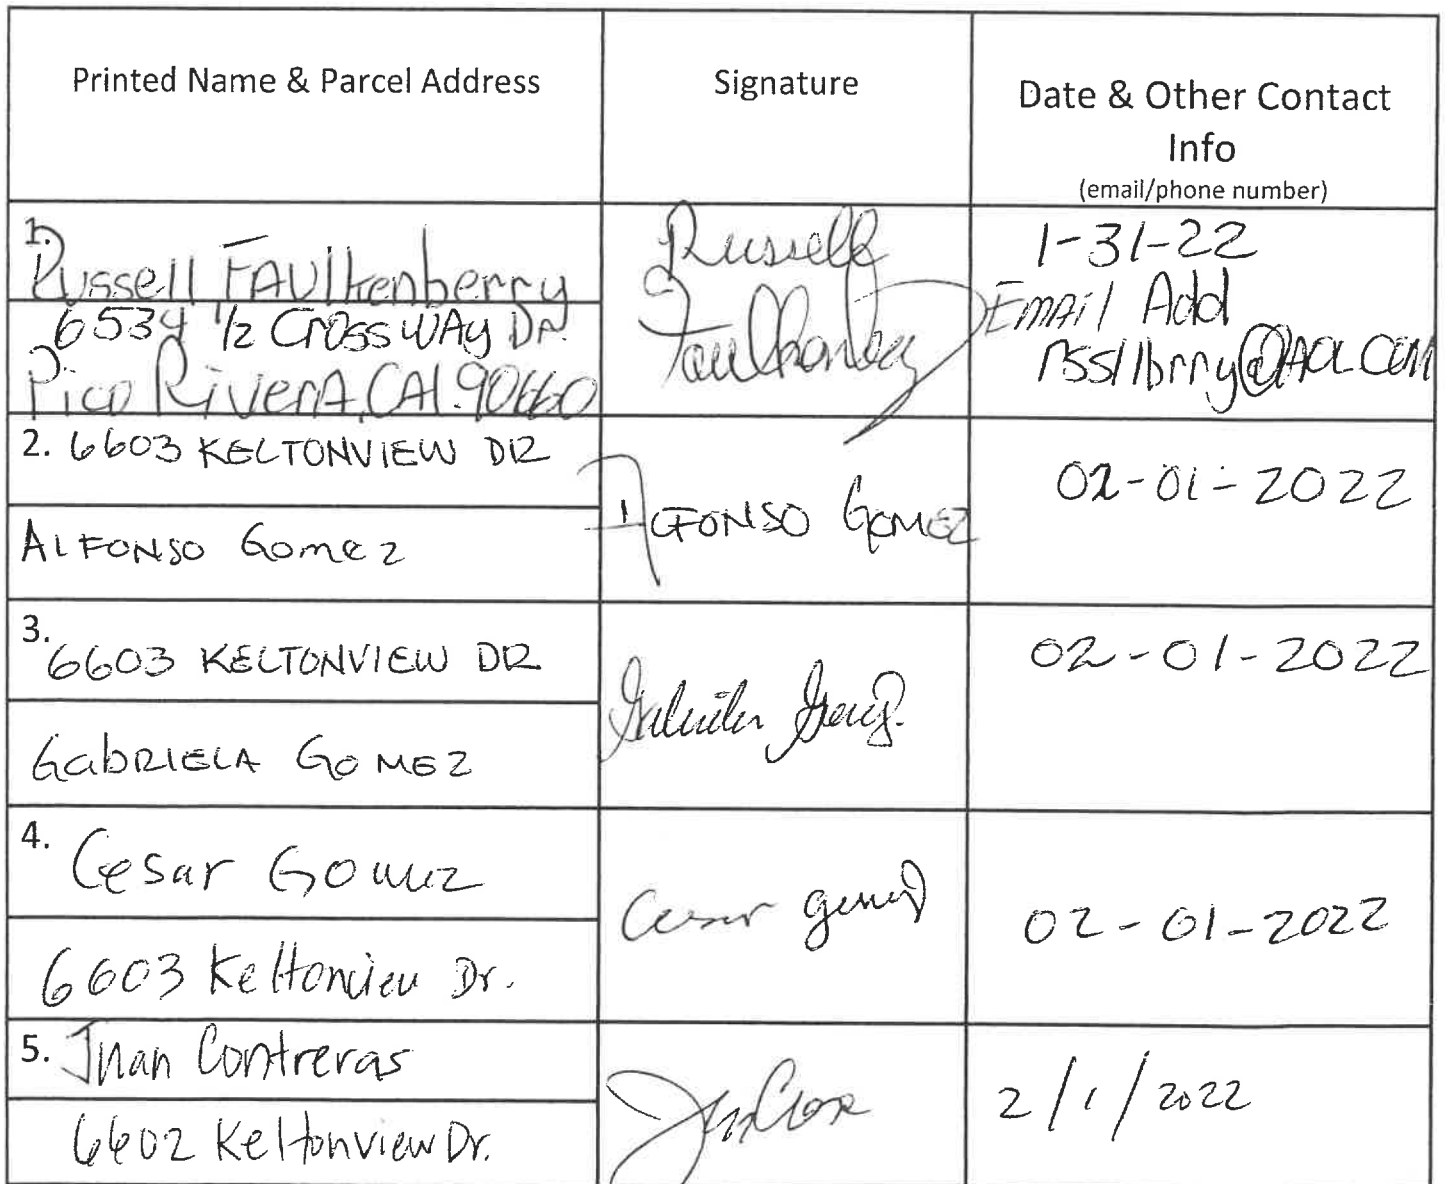 Printed Name & Parcel Address
Signature
Date & Other Contact
Info
(email/phone number)
1.
Russell FAUlkenberry
6534 1/2 CrossWAy Dr.
Pico RiverA, CAl. 90660
Russell
Faulkenberry
1-31-22
EmAil Add
rssllbrry@AOL.COM
2. 6603 KELTONVIEW DR
ALFONSO Gomez
ALFONSO GOMEZ
02-01-2022
3.
6603 KELTONVIEW DR
GabRIELA GOMEZ
Gabriela Gomez
02-01-2022
4.
Cesar Gomez
6603 Keltonview Dr.
Cesar gomez
02-01-2022
5. Juan Contreras
6602 Keltonview Dr.
2/1/2022